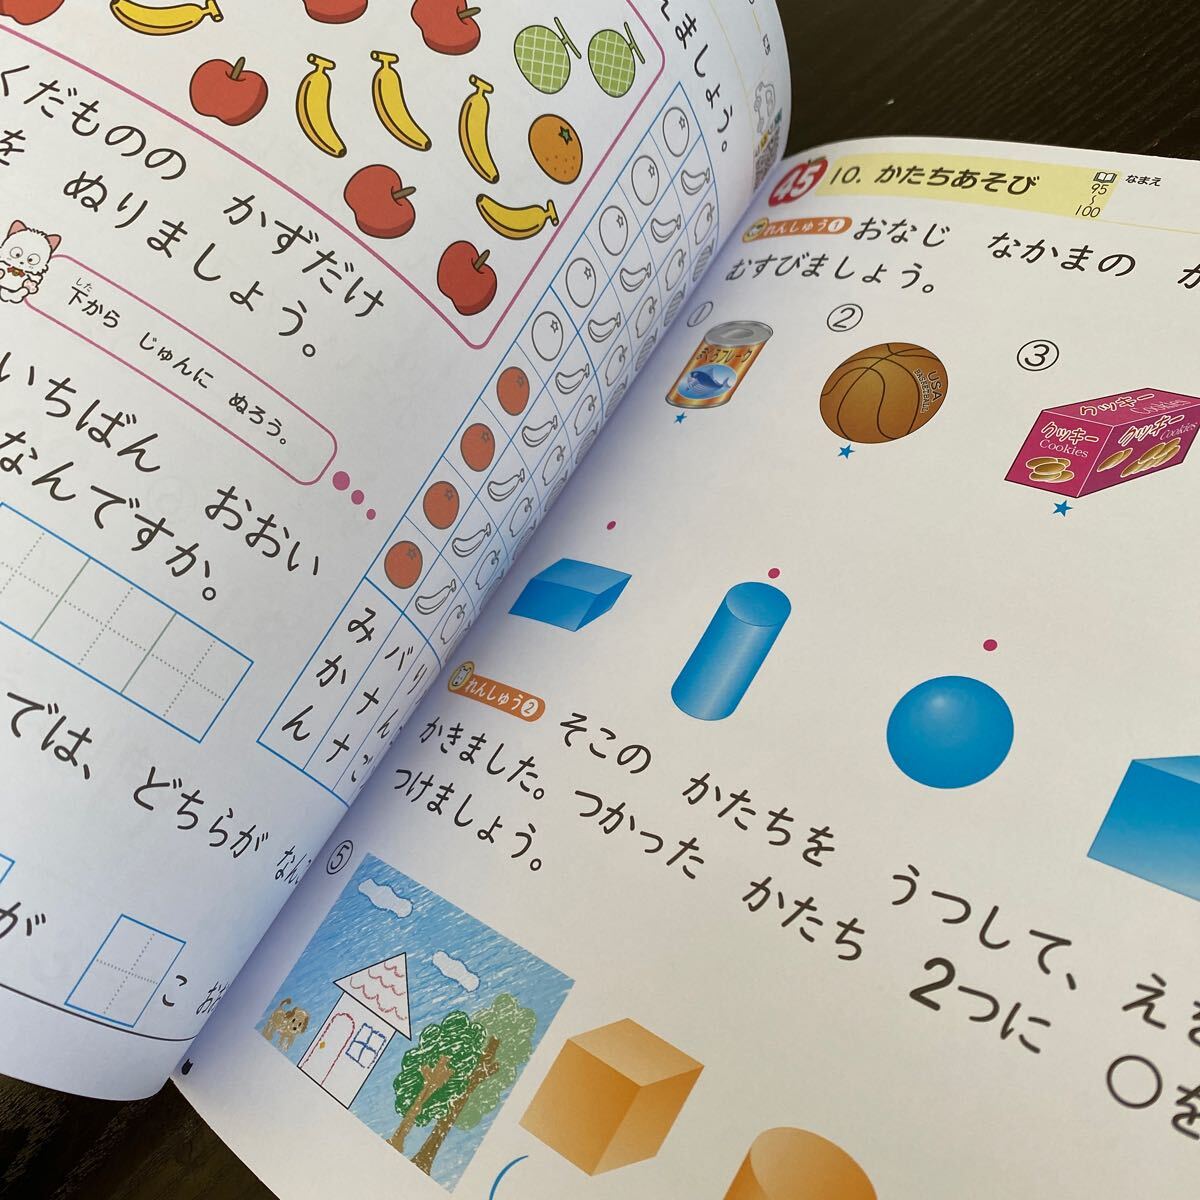 えましょう。
くだものの かずだけ
を ぬりましょう。
下から じゅんに ぬろう。
した
いちばん おおい
なんですか。
みかん
バナナ
りんご
では、どちらが
が
こ
45
10. かたちあそび
95
〜
100
なまえ
れんしゅう①
おなじ なかまの か
むすびましょう。
①
②
③
USA
BASKETBALL
クッキー
Cookies
クッキー
Cookies
クッキー
Cookies
れんしゅう②
そこの かたちを うつして、えを
かきました。つかった かたち 2つに ○を
つけましょう。
⑤